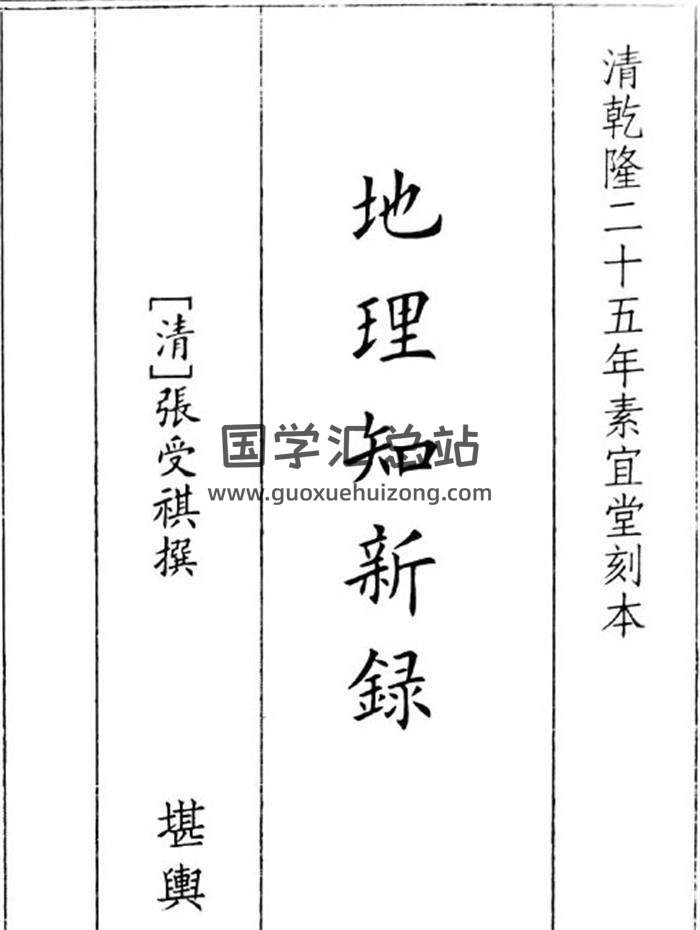 清乾隆二十五年素宜堂刻本
地理知新録
[清]張受祺撰
堪輿
国学汇总站
www.guoxuehuizong.com